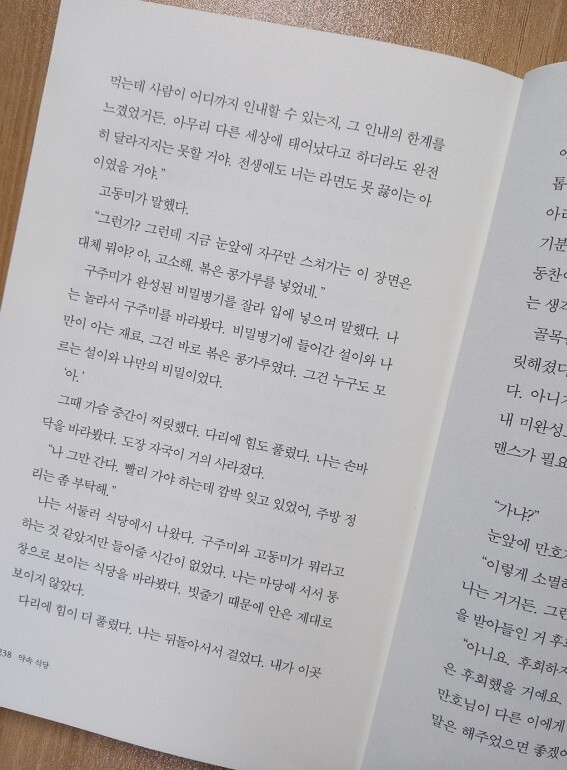 먹는데 사람이 어디까지 인내할 수 있는지, 그 인내의 한계를
느꼈었거든. 아무리 다른 세상에 태어났다고 하더라도 완전
히 달라지지는 못할 거야. 전생에도 너는 라면도 못 끓이는 아
이였을 거야."
고동미가 말했다.
"그런가? 그런데 지금 눈앞에 자꾸만 스쳐가는 이 장면은
대체 뭐야? 아, 고소해. 볶은 콩가루를 넣었네."
구주미가 완성된 비밀병기를 잘라 입에 넣으며 말했다. 나
는 놀라서 구주미를 바라봤다. 비밀병기에 들어간 설이와 나
만이 아는 재료, 그건 바로 볶은 콩가루였다. 그건 누구도 모
르는 설이와 나만의 비밀이었다.
'아.'
그때 가슴 중간이 찌릿했다. 다리에 힘도 풀렸다. 나는 손바
닥을 바라봤다. 도장 자국이 거의 사라졌다.
"나 그만 간다. 빨리 가야 하는데 깜박 잊고 있었어, 주방 정
리는 좀 부탁해."
나는 서둘러 식당에서 나왔다. 구주미와 고동미가 뭐라고
하는 것 같았지만 들어줄 시간이 없었다. 나는 마당에 서서 통
창으로 보이는 식당을 바라봤다. 빗줄기 때문에 안은 제대로
보이지 않았다.
다리에 힘이 더 풀렸다. 나는 뒤돌아서서 걸었다. 내가 이곳
238 약속 식당
톱
아리
기분
동찬이
는 생각
골목
릿해졌다
다. 아니
내 미완성
맨스가 필요
"가냐?"
눈앞에 만호
"이렇게 소멸하
나는 거거든. 그런
을 받아들인 거 후
"아니요. 후회하지
은 후회했을 거예요.
만호님이 다른 이에게
말은 해주었으면 좋겠어